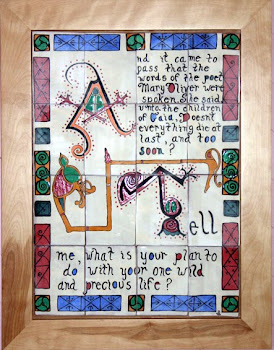 And it came to
pass that the
words of the poet
Mary Oliver were
spoken. She said,
unto the children
of Gaia, Doesn't
everything die at
last, and too
soon?
Tell
me, what is your plan to
do with your one wild
and precious life?